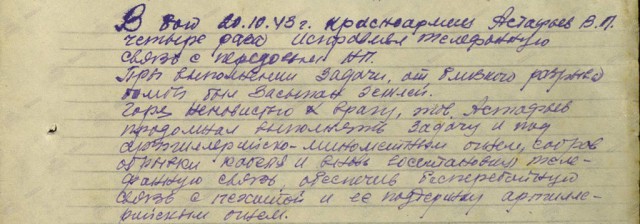 В бою 20.10.43 г. красноармеец Астафьев В.П.
четыре раза исправлял телефонную
связь с передовым НП.
При выполнении задачи, от близкого разрыва
бомбы был засыпан землей.
Горя ненавистью к врагу, тов. Астафьев
продолжал выполнять задачу и под
артиллерийско-минометным огнем, собрав
обрывки кабеля и вновь восстановил теле-
фонную связь обеспечив бесперебойную
связь с пехотой и ее поддержку артилле-
рийским огнем.